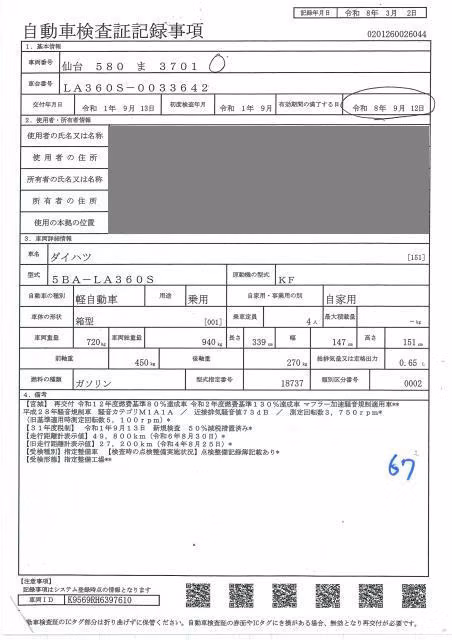 記録年月日 令和 8年 3月 2日
自動車検査証記録事項
0201260026044
1. 基本情報
車両番号 仙台 580 ま 3701
車台番号 LA360S-0033642
交付年月日 令和 1年 9月 13日 初度検査年月 令和 1年 9月 有効期間の満了する日 令和 8年 9月 12日
2. 使用者・所有者情報
使用者の氏名又は名称
使用者の住所
所有者の氏名又は名称
所有者の住所
使用の本拠の位置
3. 車両詳細情報
車名 ダイハツ [151]
型式 5BA-LA360S 原動機の型式 KF
自動車の種別 軽自動車 用途 乗用 自家用・事業用の別 自家用
車体の形状 箱型 [001] 乗車定員 4人 最大積載量 -kg
車両重量 720kg 車両総重量 940kg 長さ 339cm 幅 147cm 高さ 151cm
前軸重 450kg 後軸重 270kg 総排気量又は定格出力 0.65L
燃料の種類 ガソリン 型式指定番号 18737 類別区分番号 0002
4. 備考
【宮城】 再交付 令和12年度燃費基準80%達成車 令和2年度燃費基準130%達成車 マフラー加速騒音規制適用車**
平成28年騒音規制車 騒音カテゴリM1A1A / 近接排気騒音値73dB / 測定回転数3,750rpm*
(旧基準適用時測定回転数5,100rpm)*
【31年度税制】 令和1年9月13日 新規検査 50%減税措置済み*
【走行距離計表示値】 49,800km(令和6年8月30日)*
【旧走行距離計表示値】 27,200km(令和4年8月25日)*
【受検種別】指定整備車 【検査時の点検整備実施状況】点検整備記録簿記載あり*
【受検形態】指定整備工場**
67
【注意事項】
記録事項はシステム登録時点の情報となります
車両ID K9569RH6397610
自動車検査証のICタグ部分は折り曲げずに保管ください。自動車検査証の券面やICタグにき損がある場合、無効となり再交付が必要です。